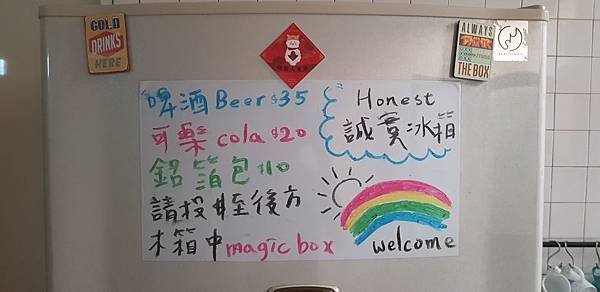 COLD
DRINKS
HERE
ALWAYS
THE BOX
啤酒Beer$35
可樂cola$20
鋁箔包$10
請投至後方
木箱中magic box
Honest
誠實冰箱
welcome